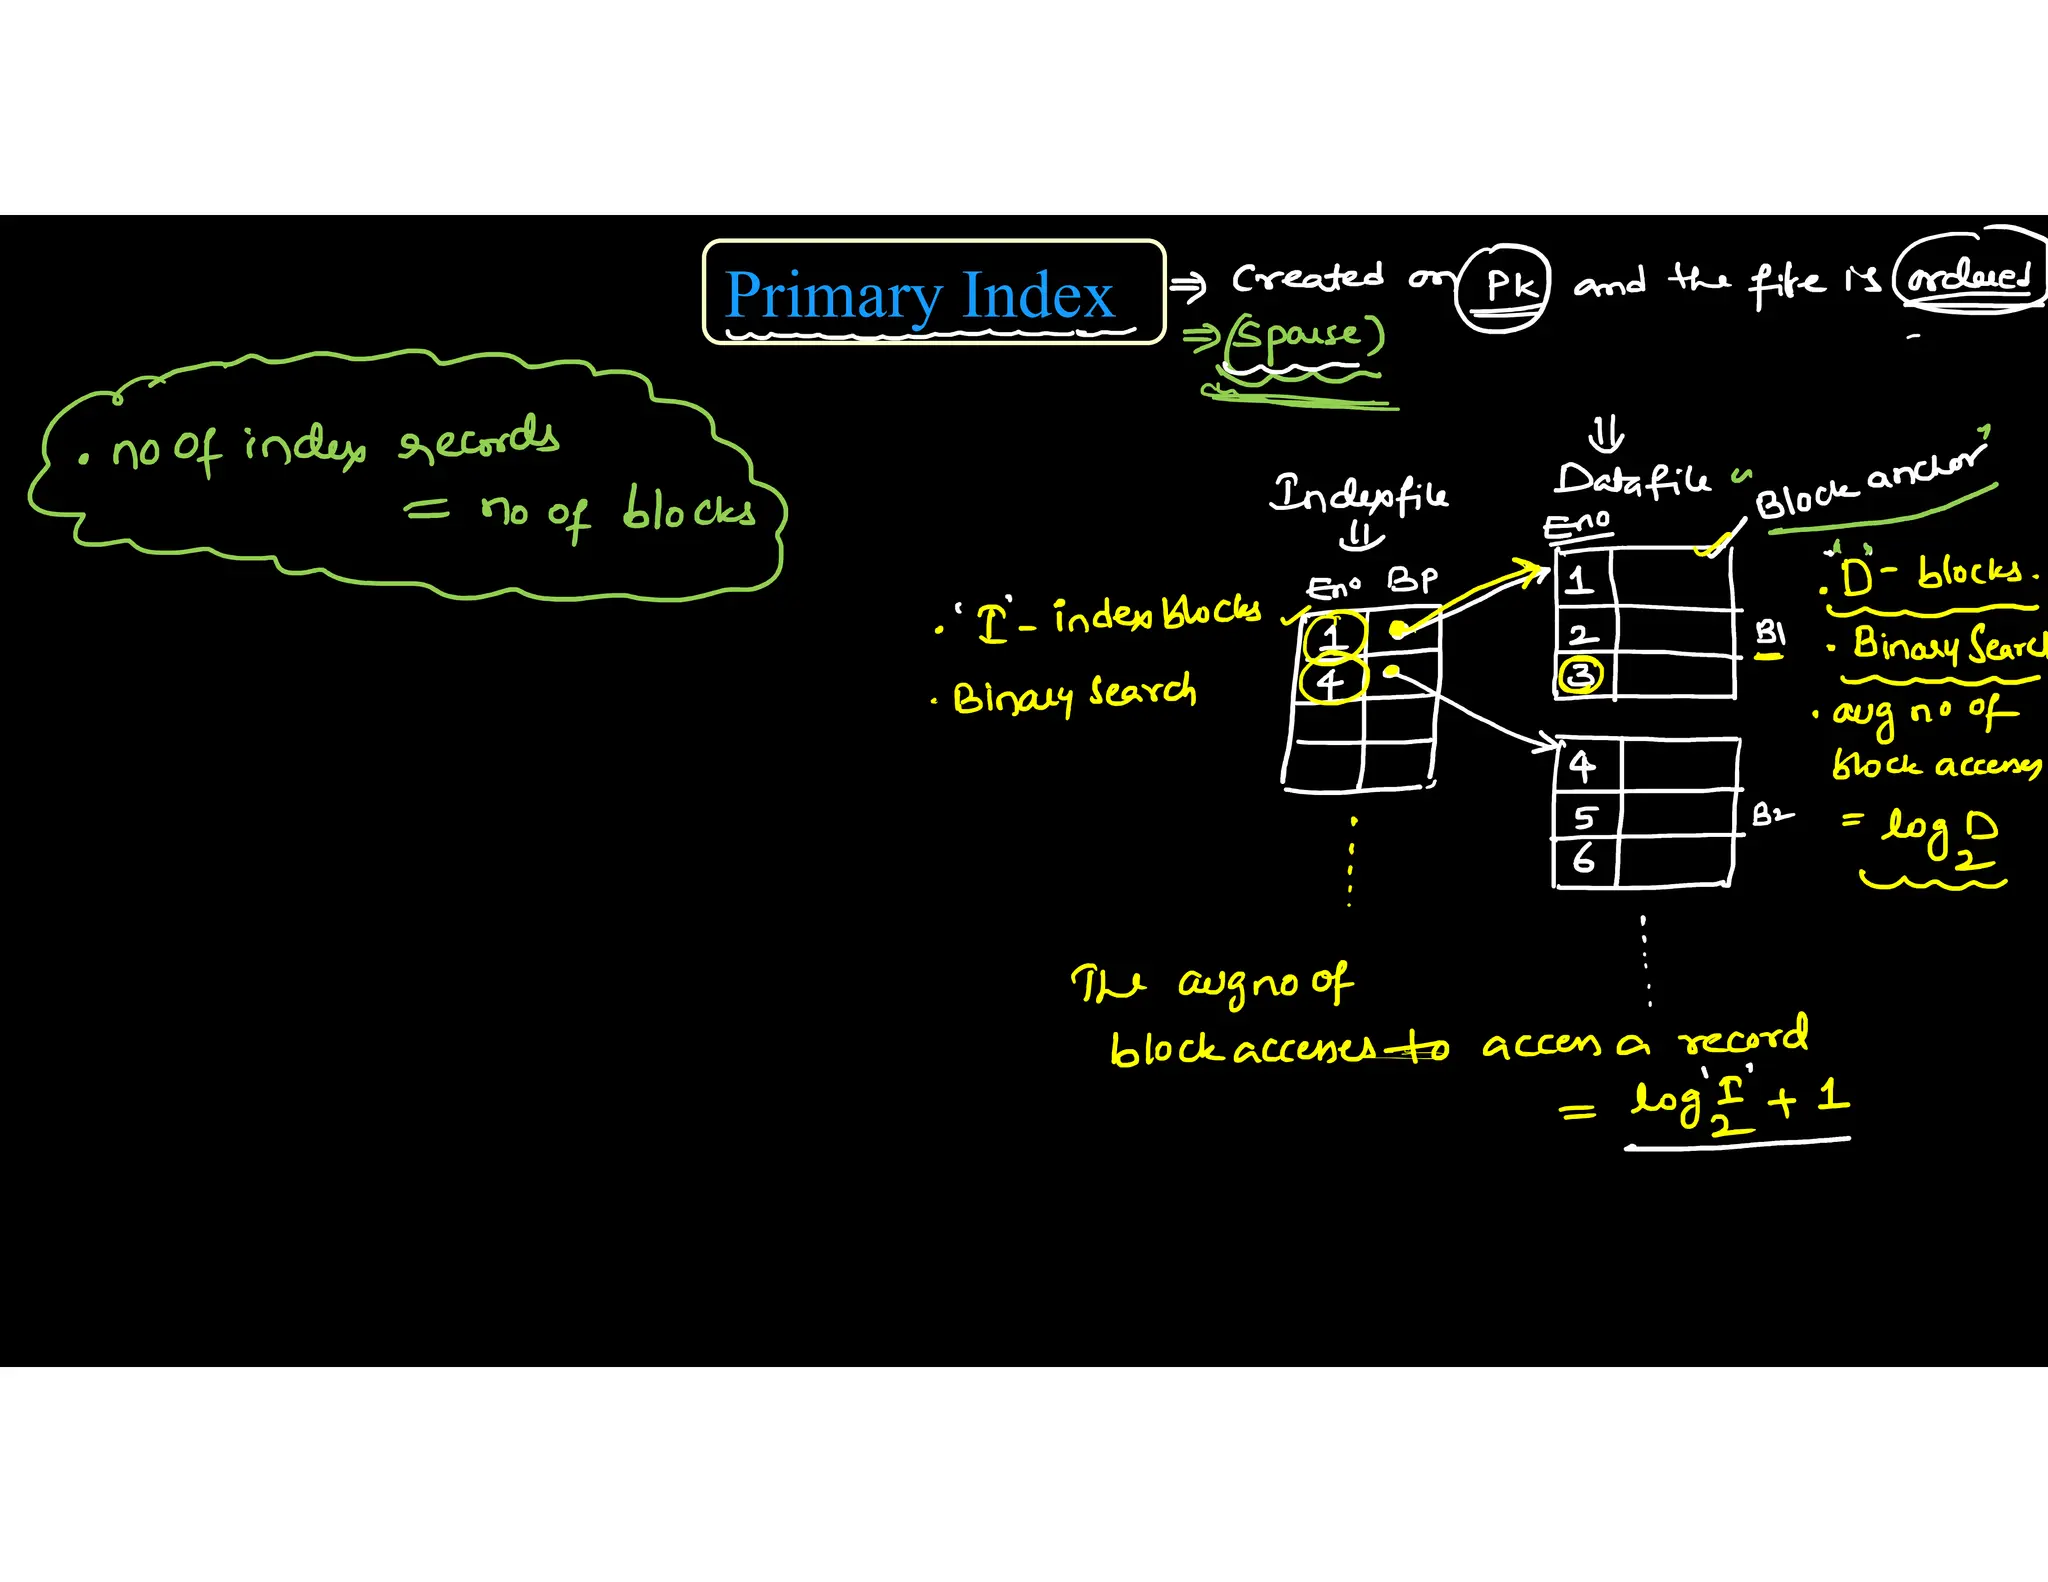 Primary Index
⇒ Created on PK and the file is ordered
⇒ (Sparse)
• no of index records
= no of blocks
Indexfile
Datafile
Block anchor
Eno
Eno BP
1
4
1
2
3
B1
4
5
6
B2
• 'I' - index blocks
• Binary search
• "D" - blocks.
• Binary Search
• avg no of
block accesses
= log₂ D
The avg no of
block accesses to access a record
= log₂ 'I' + 1